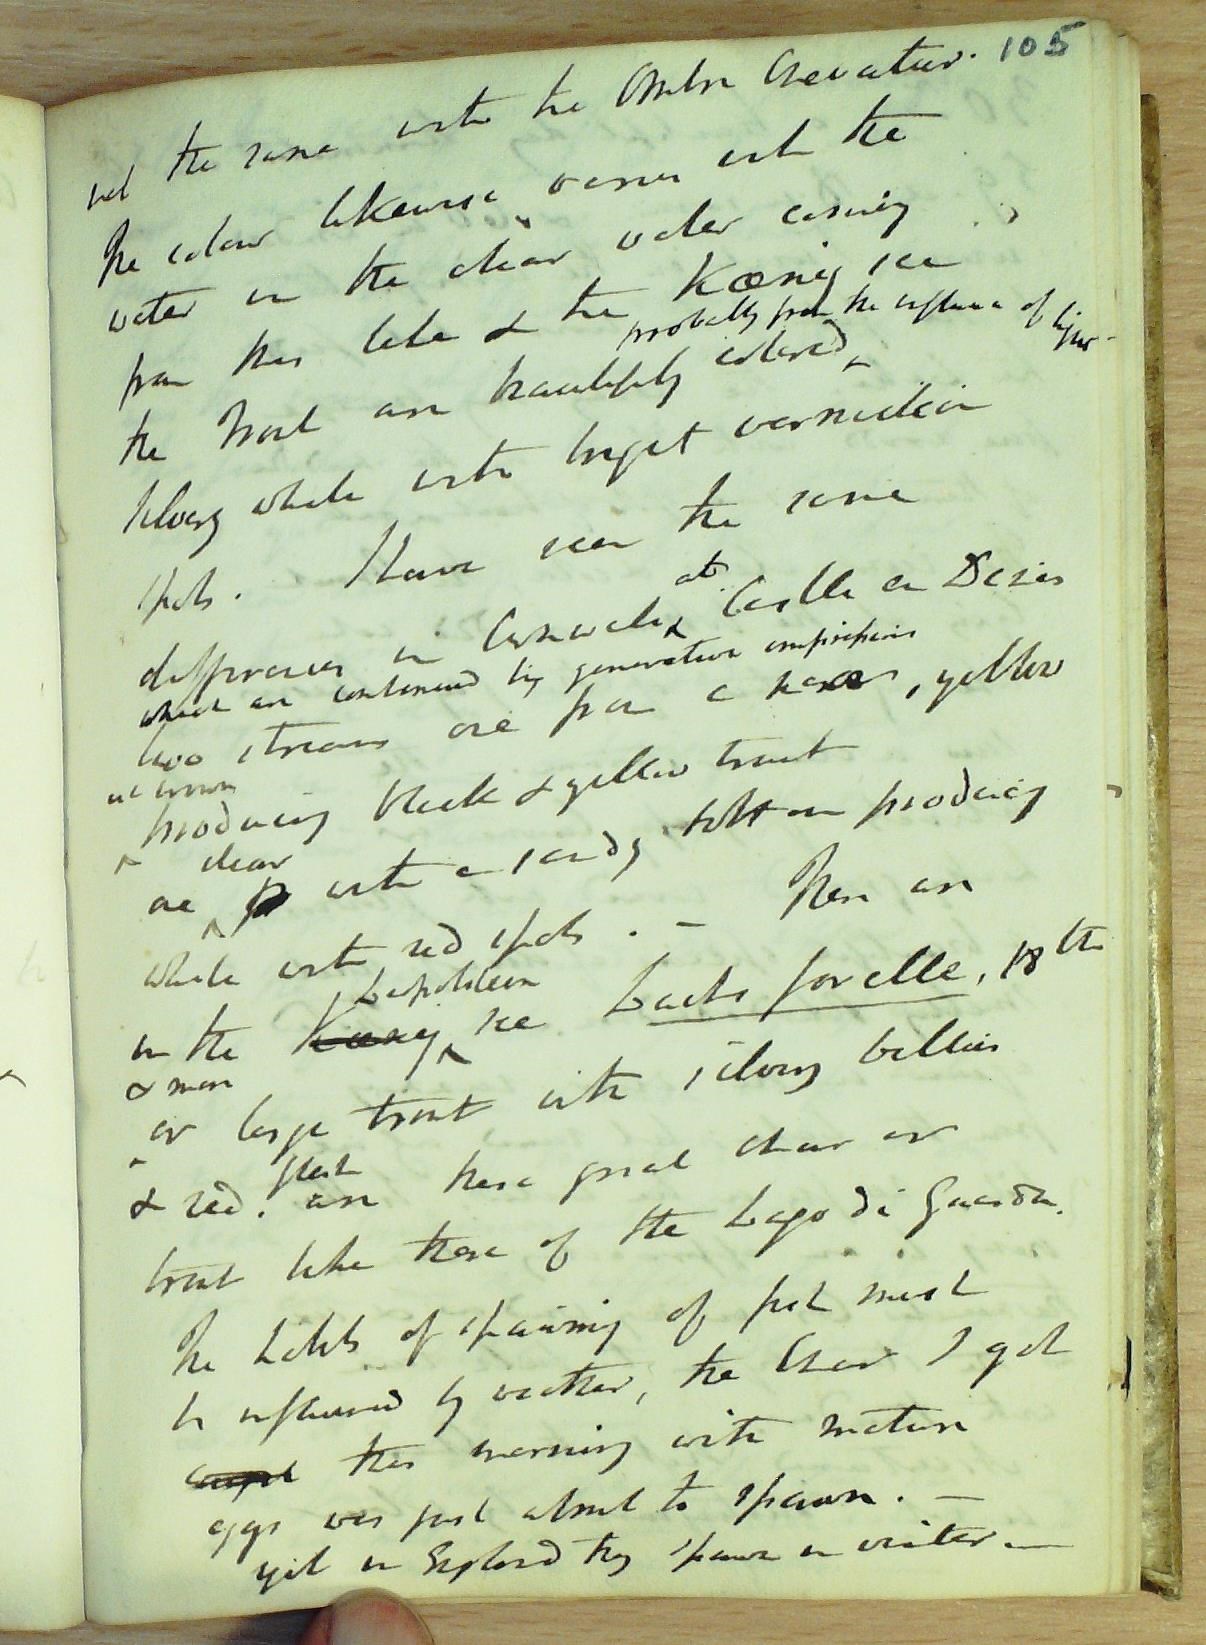 105
not the same with the Ombre Chevalier.
The colour likewise varies with the
water in the clear water coming
from this lake & the Kœnig see
probably from the influence of light
the Trout are beautifully colored
silvery white with bright vermilion
spots. I have seen the same
at
differences in Cornwall & Castle en
which are continued by generative
two streams one from a , yellow
or brown
producing black & yellow trout
clear
one with a sandy bottom producing
white with red spots. - There are
in the Kœnig see Lachs forelle, 18th
& more
or large trout with silvery bellies
flesh
& red. are these great char or
trout like those of the Lago di Guarda.
The habits of spawning of fish must
be influenced by weather, the Char I got
this morning with mature
eggs was just about to spawn. -
yet in England they spawn in winter -